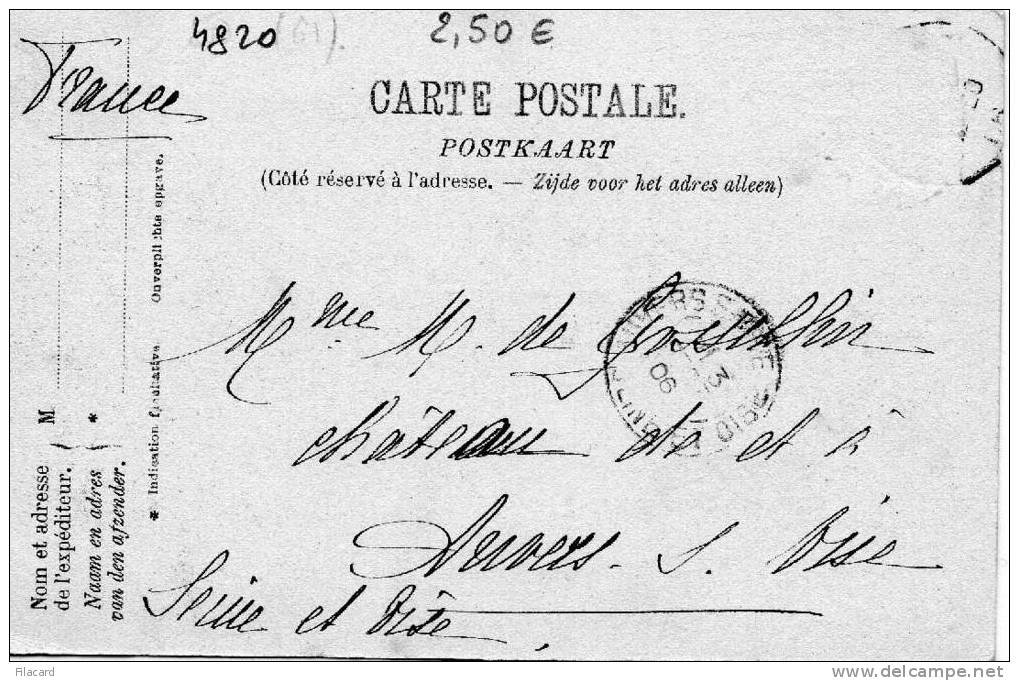 4820 (61).
2,50 €
France
CARTE POSTALE.
POSTKAART
(Côté réservé à l'adresse. — Zijde voor het adres alleen)
Mme M. de
château de et à
Auvers s. Oise
Seine et Oise
Nom et adresse
de l'expéditeur.
Naam en adres
van den afzender.
M
*
* Indication facultative Onverplichte opgave.
AUVERS S. OISE
3
06
Filacard
delcampe.net